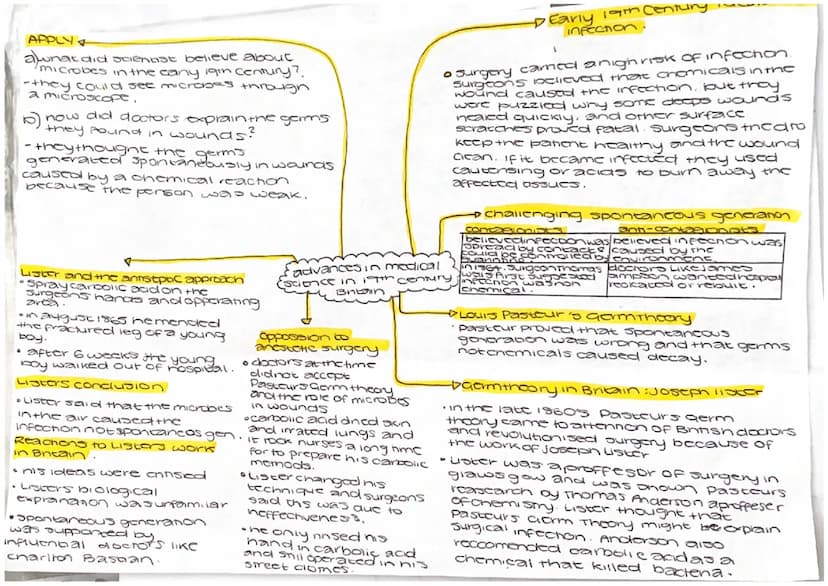 APPLY
a) what did scientist believe about
microbes in the early 19th century?
- they could see microbes through
a microscope.
b) how did doctors explain the germs
they found in wounds?
- they thought the germs
generated spontaneously in wounds
caused by a chemical reaction
because the person was weak.
Early 19th century
infection.
surgery carried a high risk of infection.
surgeons believed that chemicals in the
wound caused the infection. but they
were puzzled why some deeps wounds
healed quickly, and other surface
scratches proved fatal. Surgeons tried to
keep the patient healthy and the wound
clean. if it became infected they used
cauterising or acids to burn away the
affected tissues.
challenging spontaneous generation
contagionists
believed infection was
spread by contact &
could be controlled by
in 1867. surgeon Thomas
was first suggested
infection was non
chemical.
anti-contagionists
believed infection was
caused by the
environment.
doctors like James
simpson wanted hospital
reokated or rebuilt.
advances in medical
science in 19th century
Britain
Louis Pasteur's Germ theory
· pasteur proved that spontaneous
generation was wrong and that germs
not chemicals caused decay.
Germ theory in Britain : Joseph lister
· in the late 1960's Pasteurs Germ
theory came to attention of British doctors
and revolutionised surgery because of
the work of Joseph Lister
· Lister was a proffesor of surgery in
glawsgow and was shown Pasteurs
reasearch by Thomas Anderson a proffeser
of chemistry. Lister thought that
Pasteurs Germ Theory might be explain
Surgical infection. Anderson also
reccomended carbolic acid as a
chemical that killed bacteria.
Lister and the antiseptic approach
· spray carbolic acid on the
surgeons hands and opperating
area.
· in august 1865 he mended
the fractured leg of a young
boy.
· after 6 weeks the young
boy walked out of hospital.
Listers conclusion
· Lister said that the microbes
in the air caused the
infection not spontaneos gen.
Reactions to Listers work
in Britain
· his ideas were critised
· Listers biological
explanation was unfamiliar
· spontaneous generation
was supported by
influential doctors like
charlton Bastian.
oppossion to
anestetic surgery
· doctors at the time
did not accept
Pasteurs Germ theory
and the role of microbes
in wounds
· carbolic acid dried skin
and irrated lungs and
it took nurses a long time
for to prepare his carbolic
methods.
· Lister changed his
technique and surgeons
said this was due to
ineffectiveness.
· he only rinsed his
hand in carbolic acid
and still operated in his
street clothes.